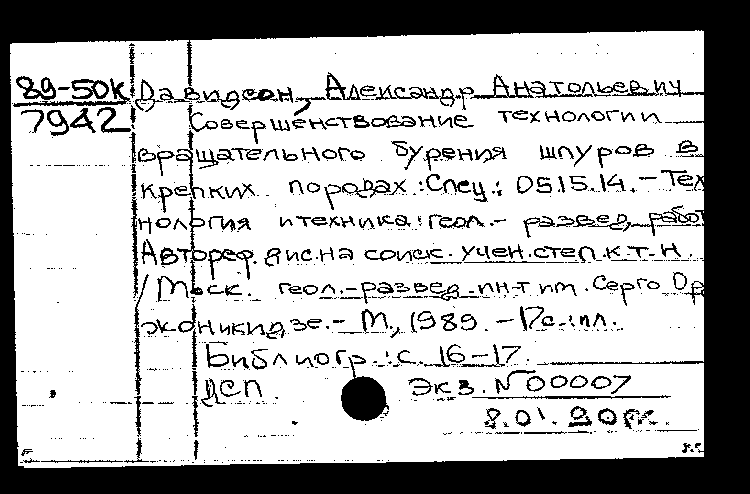 89-50к Давидсон, Александр Анатольевич
7942 Совершенствование технологии
вращательного бурения шпуров в
крепких породах: Спец.: 05.15.14. - Тех
нология и техника геол.- развед. работ
Автореф. дис. на соиск. учен. степ. к.т.н.
/Моск. геол.-развед. ин-т им. Серго Ор
жоникидзе. - М., 1989. - 17с.: ил.
Библиогр.: с. 16-17.
ДСП. Экз. №00007